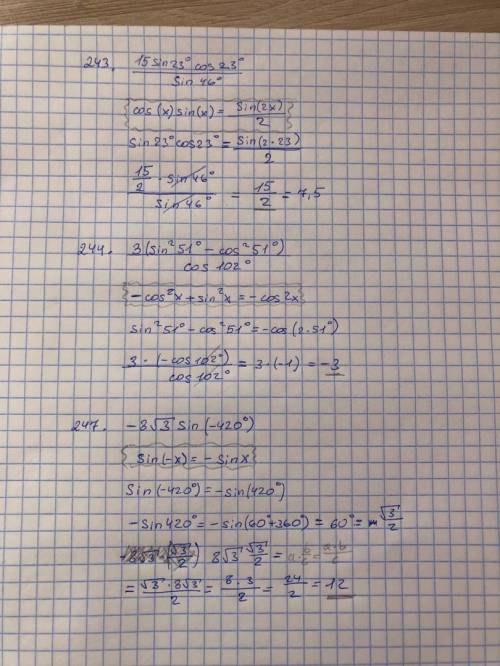 243. 15 sin23° cos23° / sin46°
cos(x) sin(x) = sin(2x) / 2
sin23° cos23° = sin(2·23) / 2
15/2 · sin46° / sin46° = 15/2 = 7,5
244. 3(sin²51° - cos²51°) / cos102°
-cos²x + sin²x = -cos2x
sin²51° - cos²51° = -cos(2·51°)
3·(-cos102°) / cos102° = 3·(-1) = -3
247. -8√3 sin(-420°)
sin(-x) = -sinx
sin(-420°) = -sin(420°)
-sin420° = -sin(60°+360°) = 60° = √3/2
8√3 √3/2 = a·b/c = a·b/c
= √3·8√3 / 2 = 8·3 / 2 = 24/2 = 12